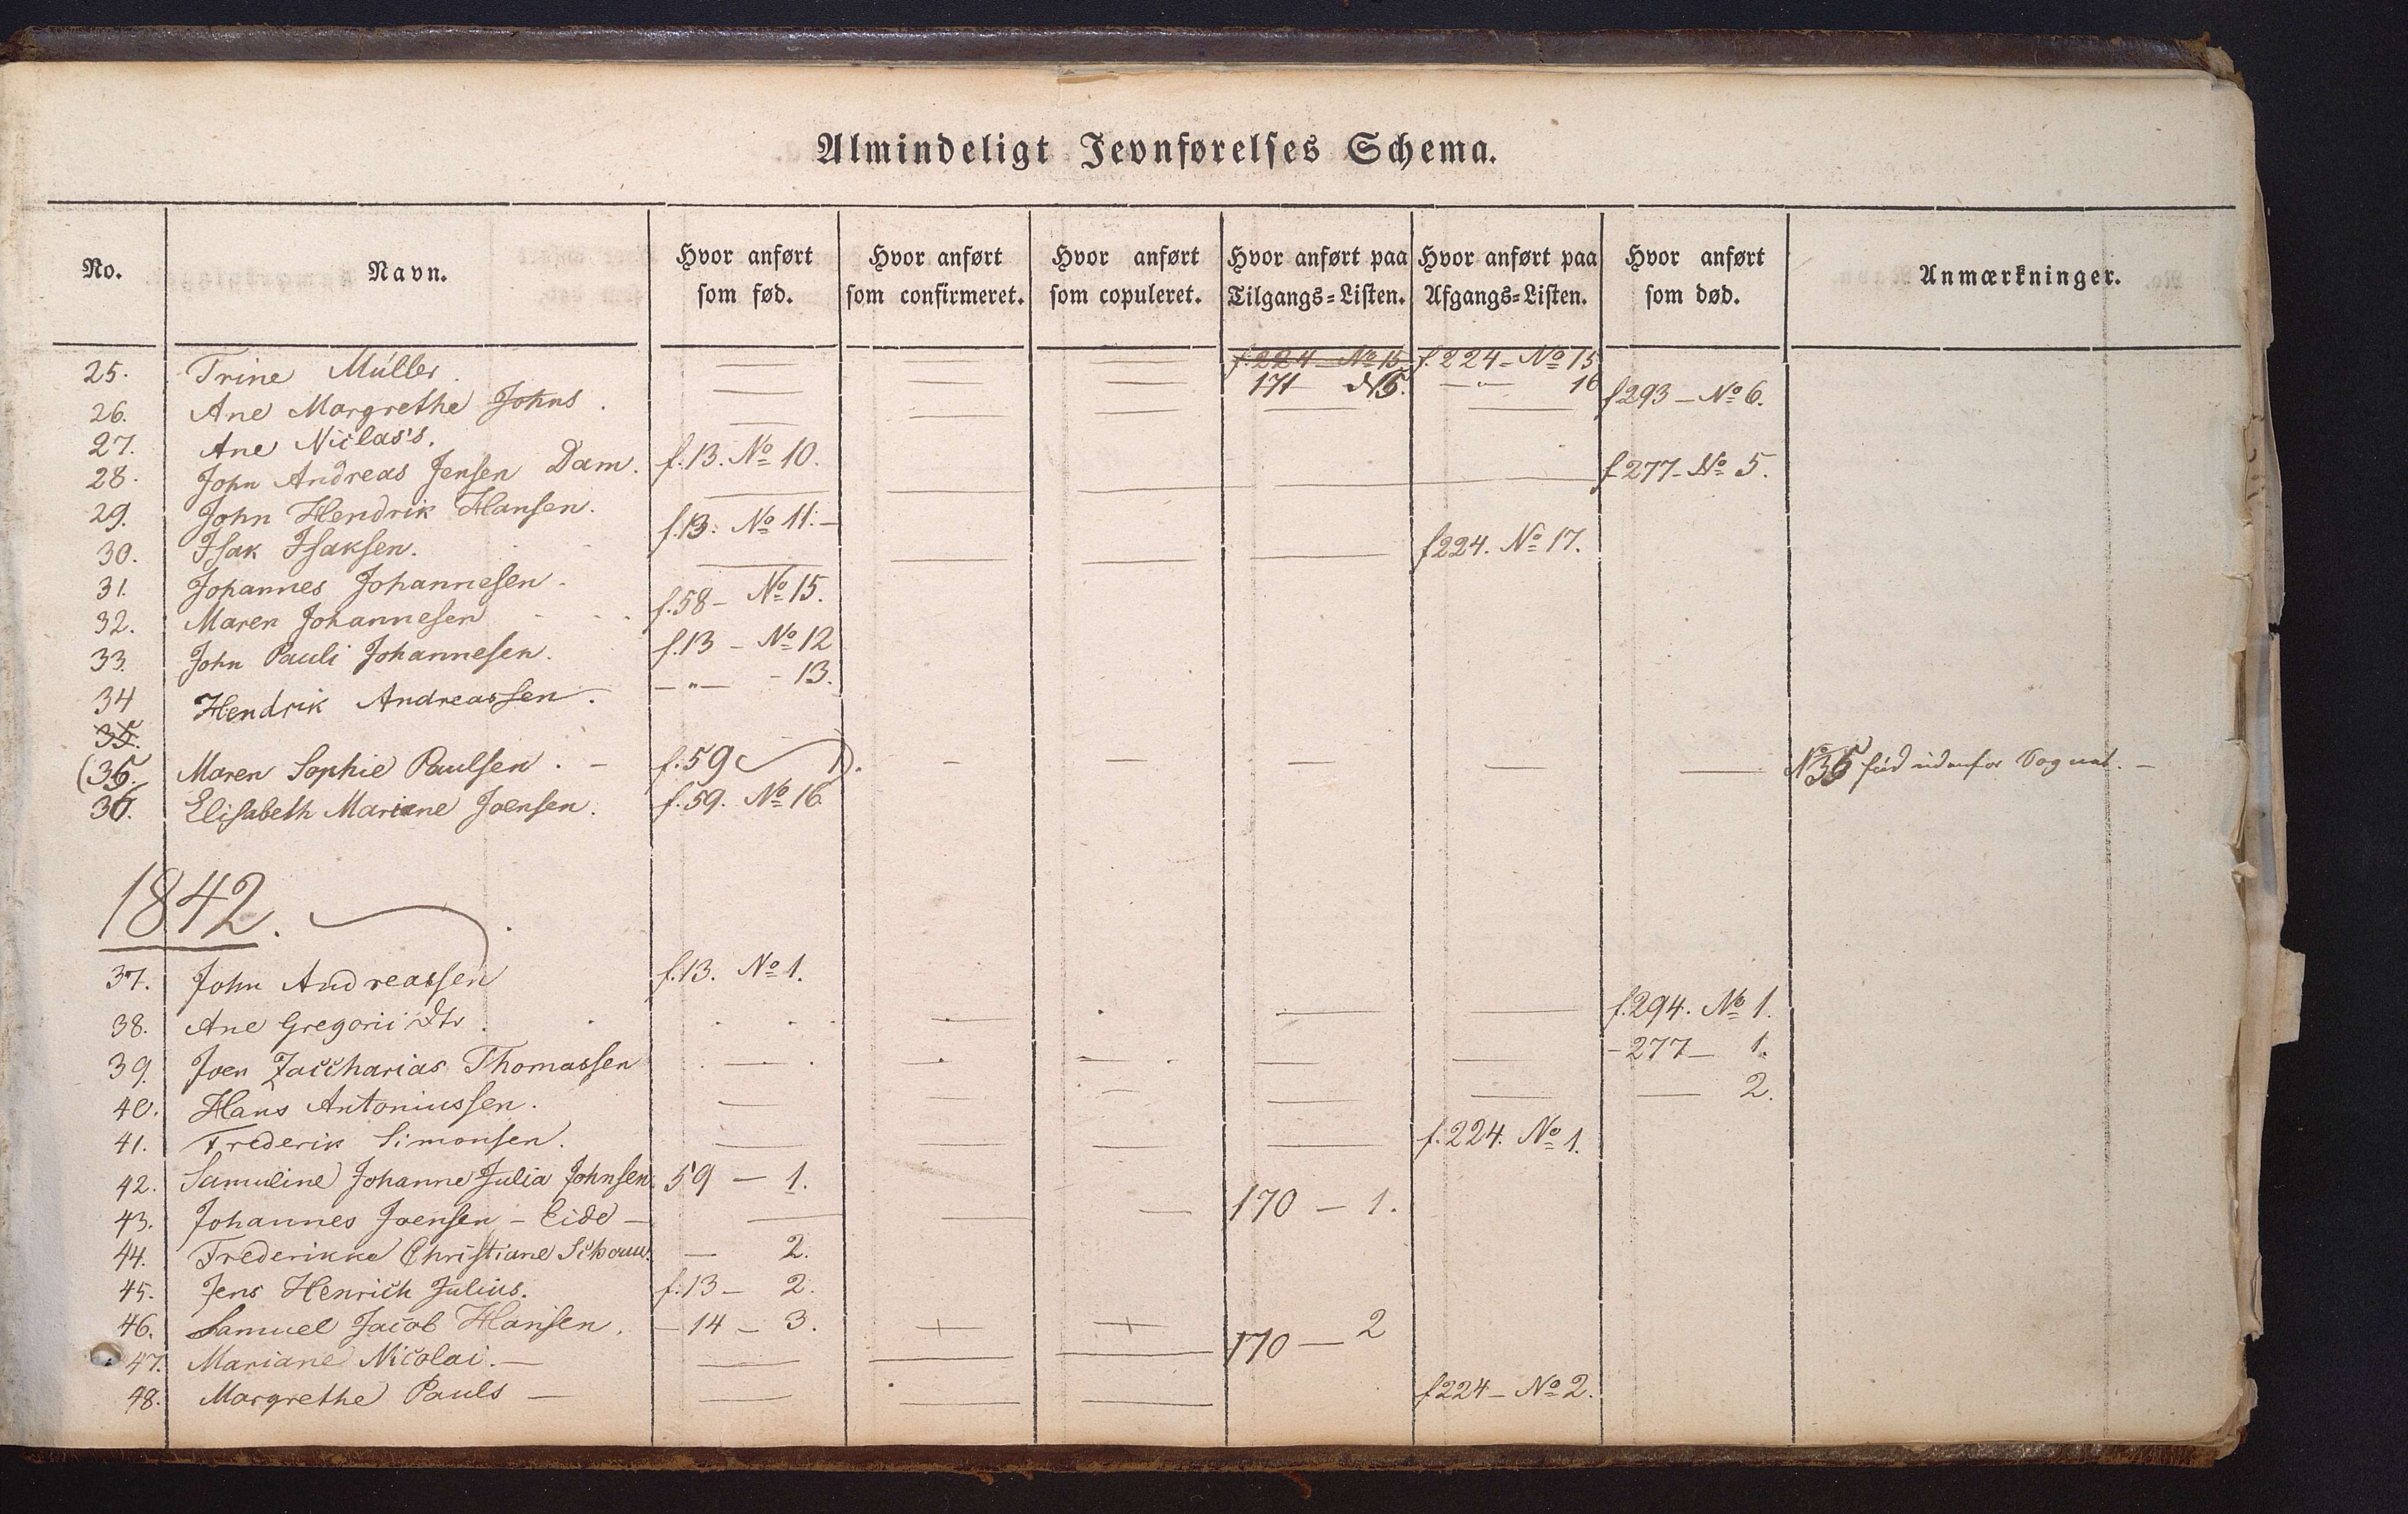 Almindeligt Jevnførelses Schema.
No. Navn. Hvor anført som fød. Hvor anført som confirmeret. Hvor anført som copuleret. Hvor anført paa Tilgangs=Listen. Hvor anført paa Afgangs=Listen. Hvor anført som død. Anmærkninger.
25. Trine Müller. — — — f. 224 No 15 f. 224 – No 15
26. Ane Margrethe Johns. — — — 171 – 16
27. Ane Niclas's. — — — — — f 293 – No 6.
28. John Andreas Jensen Dam. f. 13. No 10.
29. John Hendrik Hansen. — — — — — f 277 – No 5.
30. Isak Isaksen. f. 13. No 11. –
31. Johannes Johannesen. — — — — f 224. No 17.
32. Maren Johannesen f. 58 – No 15.
33. John Pauli Johannesen. f. 13 – No 12
34 Hendrik Andreassen. – " – – 13.
35.
(35. Maren Sophie Paulsen. – f. 59 ). – – – – — No 35 fød udenfor Sognet. –
36. Elisabeth Mariane Joensen. f. 59. No 16
1842.
37. John Andreassen f. 13. No 1.
38. Ane Gregorii Dtr. — — — f. 294. No 1.
39. Joen Zaccharias Thomassen — — — — – 277 – 1.
40. Hans Antoniussen. — — — — — — 2.
41. Frederik Simonsen. — — — — f. 224. No 1.
42. Samuline Johanne Julia Johnsen. 59 – 1.
43. Johannes Joensen – Eide – — — — 170 – 1.
44. Frederikke Christiane Schouw. — 2.
45. Jens Henrich Julius. f. 13 – 2.
46. Samuel Jacob Hansen. – 14 – 3.
47. Mariane Nicolai. – — — — 170 – 2
48. Margrethe Pauls – — — — f 224 – No 2.